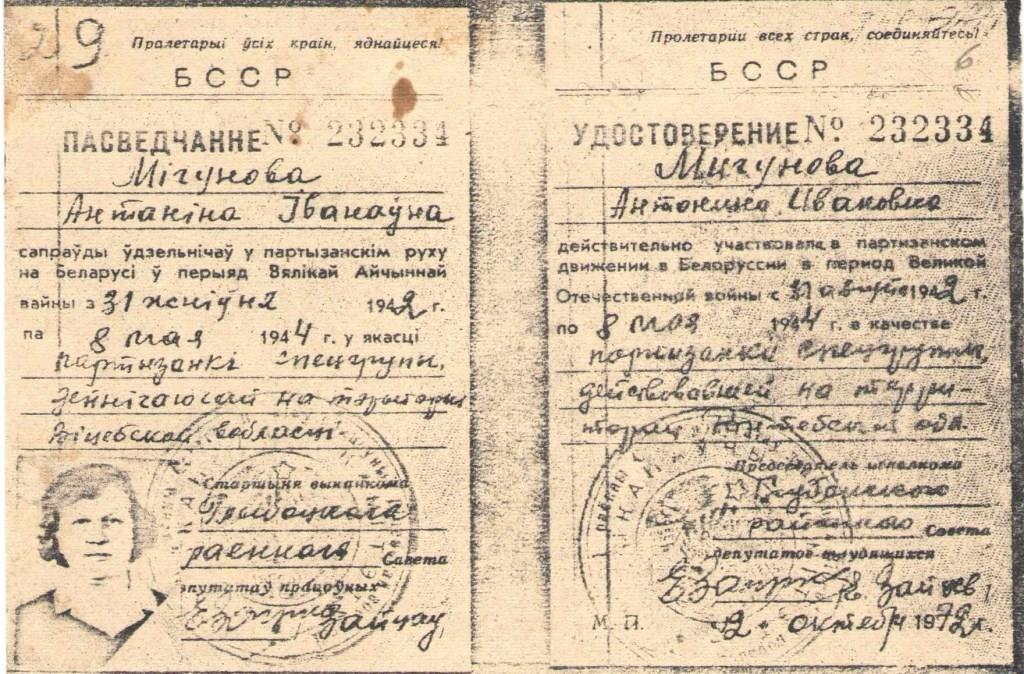 9
Пралетарыі ўсіх краін, яднайцеся!
БССР
ПАСВЕДЧАННЕ № 232334
Мігунова
Антаніна Іванаўна
сапраўды ўдзельнічаў у партызанскім руху
на Беларусі ў перыяд Вялікай Айчыннай
вайны з 31 жніўня 1942 г.
па 8 мая 1944 г. у якасці
партызанкі спецгрупы,
на тэрыторыі
Віцебской вобласті
Старшыня выканкома
Глыбоцкага
раённага Савета
дэпутатаў працоўных
Зайцаў
6
Пролетарии всех стран, соединяйтесь!
БССР
УДОСТОВЕРЕНИЕ № 232334
Мигунова
Антонина Ивановна
действительно участвовала в партизанском
движении в Белоруссии в период Великой
Отечественной войны с 31 августа 1942 г.
по 8 мая 1944 г. в качестве
партизанки спецгруппы,
действовавшей на терри-
тории Витебской обл.
Председатель исполкома
Глубокского
районного Совета
депутатов трудящихся
Е. Зайцев
М. П. 2 октября 1972 г.